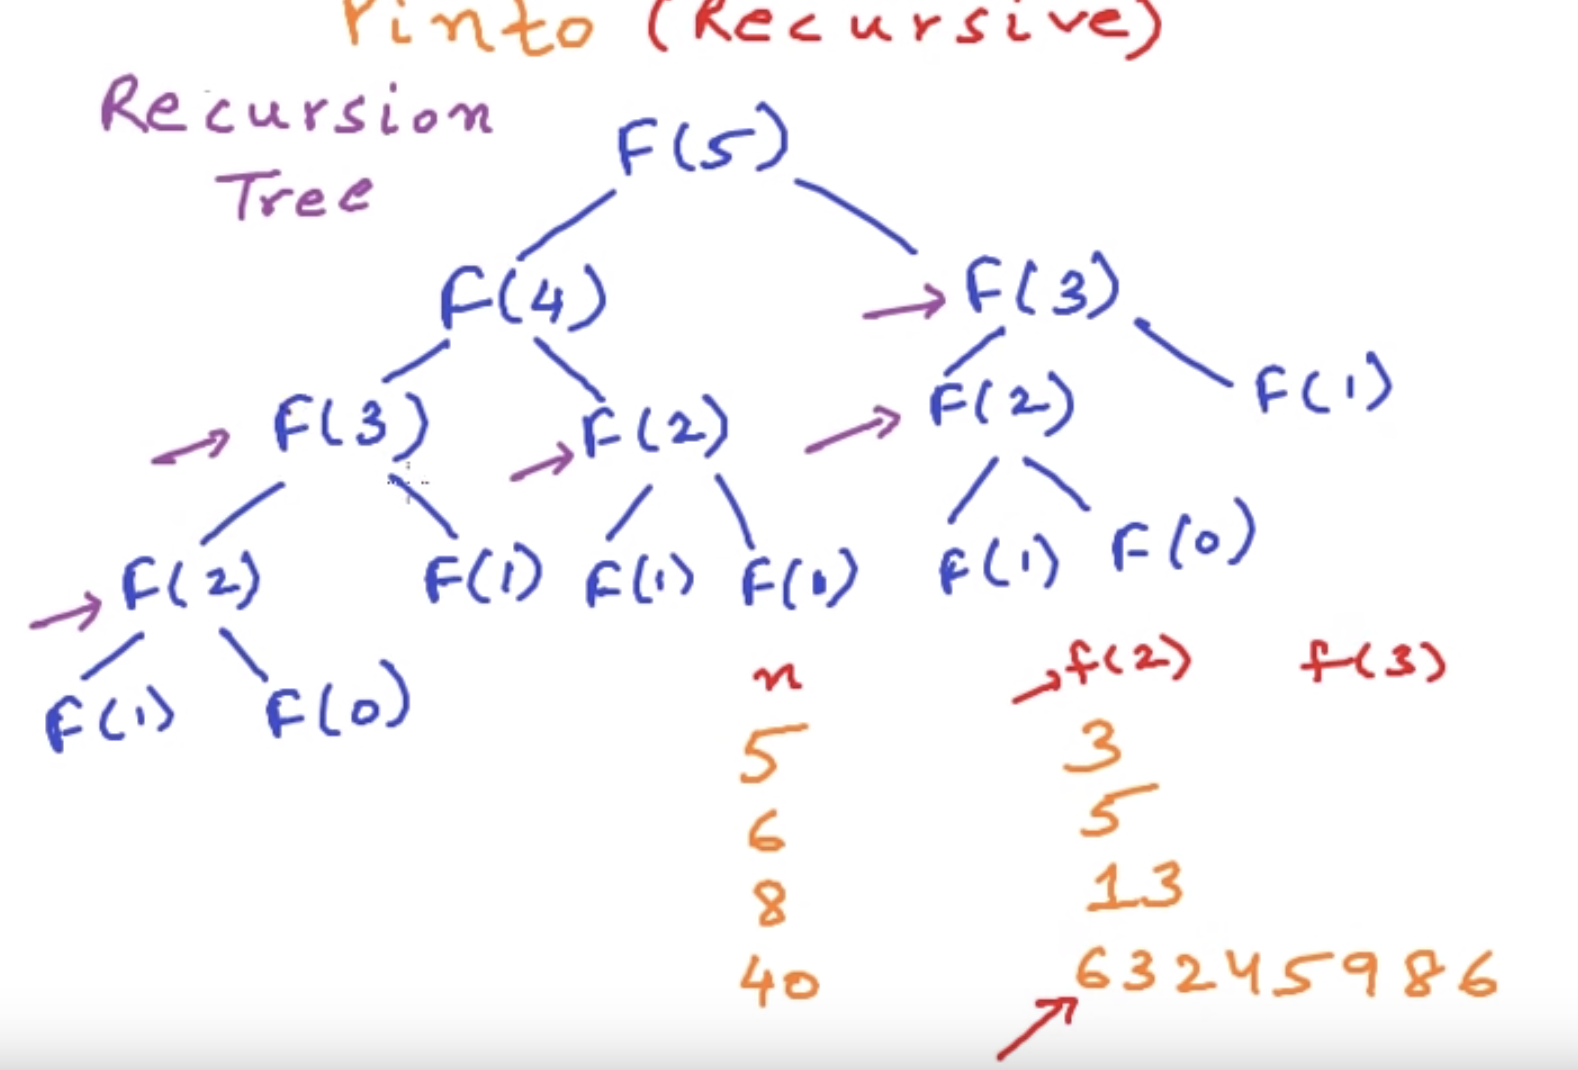 Pinto (Recursive)
Recursion
Tree
F(5)
F(4) F(3)
F(3) F(2) F(2) F(1)
F(2) F(1) F(1) F(0) F(1) F(0)
F(1) F(0)
n f(2) f(3)
5 3
6 5
8 13
40 63245986